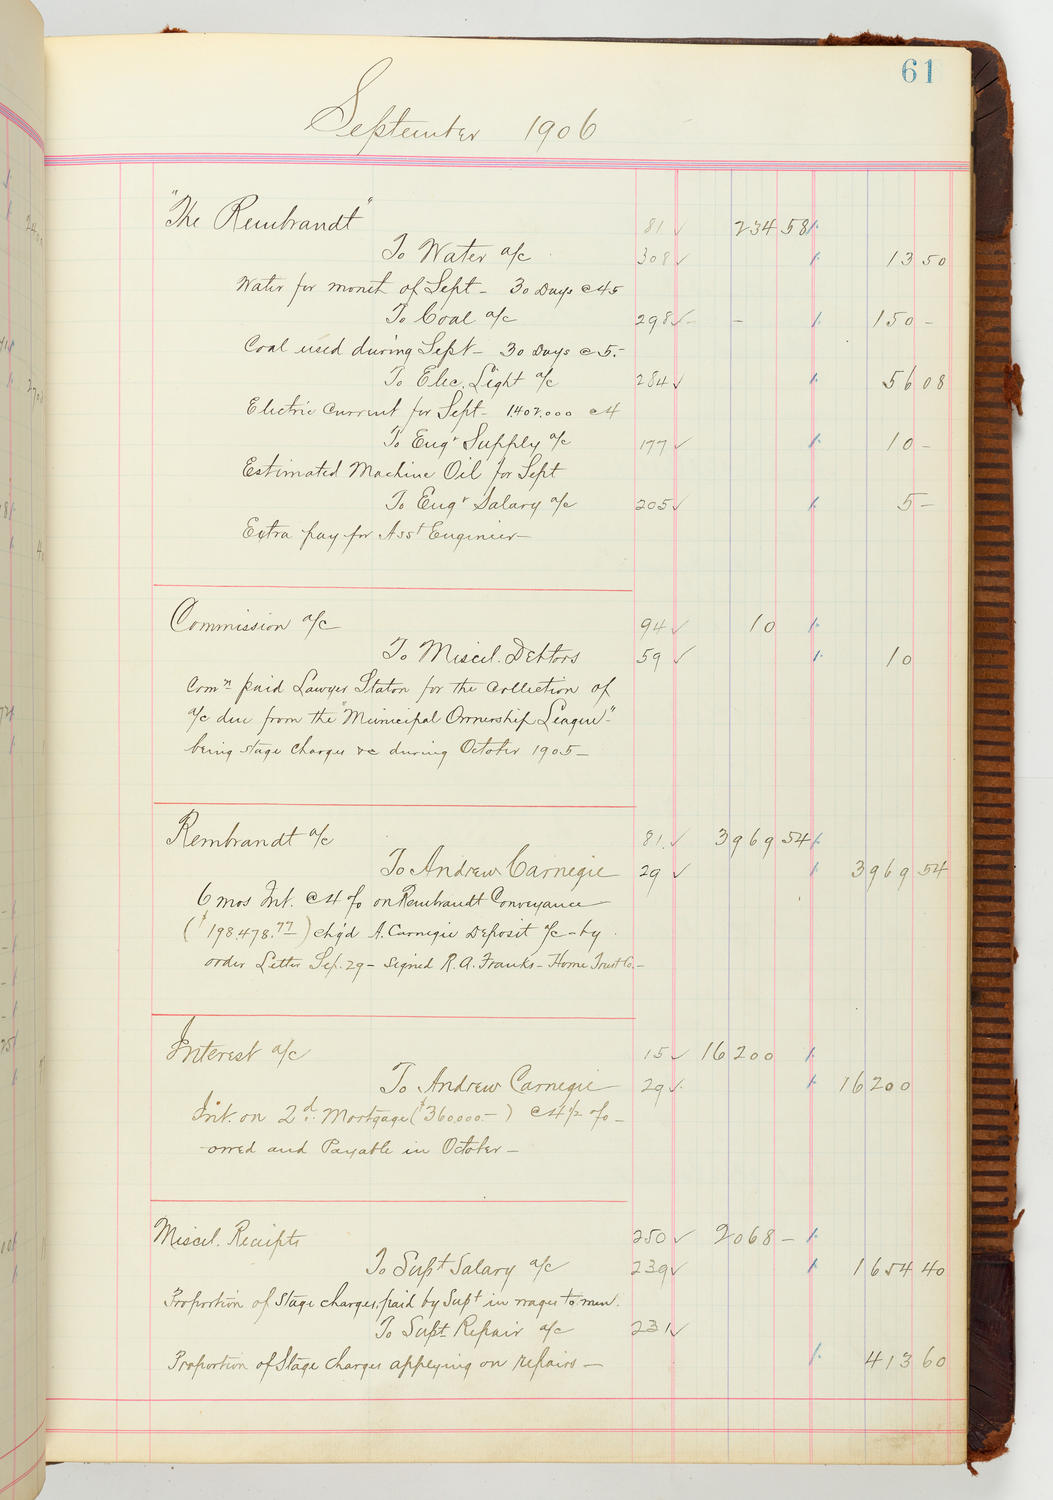 61
September 1906
"The Rembrandt" 81 ✓ 234 58
To Water a/c 308 ✓ 13 50
Water for month of Sept - 30 Days @ 45
To Coal a/c 298 ✓ - - 150 -
Coal used during Sept - 30 Days @ 5.-
To Elec. Light a/c 284 ✓ 56 08
Electric Current for Sept - 1402.000 @ 4
To Engr Supply a/c 177 ✓ 10 -
Estimated Machine Oil for Sept
To Engr Salary a/c 205 ✓ 5 -
Extra pay for Asst Engineer -
Commission a/c 94 ✓ 10
To Miscel. Debtors 59 ✓ 10
Comn paid Lawyer Staton for the collection of
a/c due from the "Municipal Ownership League"-
being stage charges &c during October 1905 -
Rembrandt a/c 81 ✓ 3969 54
To Andrew Carnegie 29 ✓ 3969 54
6 mos Int. @ 4 % on Rembrandt Conveyance
($198.478.77) chg'd A. Carnegie Deposit a/c - by
order Letter Sep. 29 - signed R.A. Franks - Home Trust Co. -
Interest a/c 15 ✓ 16200
To Andrew Carnegie 29 ✓ 16200
Int. on 2d Mortgage ($360000.-) @ 4 1/2 % -
owed and Payable in October -
Miscel. Receipts 250 ✓ 2068 -
To Supt Salary a/c 239 ✓ 1654 40
Proportion of stage charges, paid by Supt in wages to men.
To Supt. Repair a/c 231 ✓
Proportion of Stage charges applying on repairs - 413 60